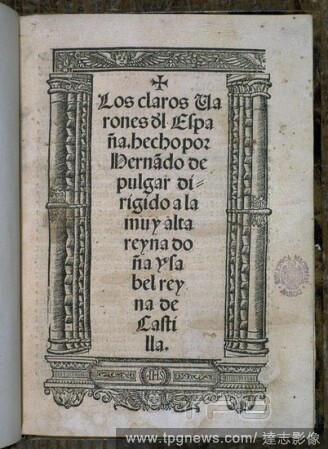 ✠
Los claros Ua
rones d'l Espa
ña. hecho por
Hernãdo de
pulgar di=
rigido a la
muy alta
reyna do
ña ysa
bel rey
na de
Casti
lla.
IHS
www.tpgnews.com/ 達志影像